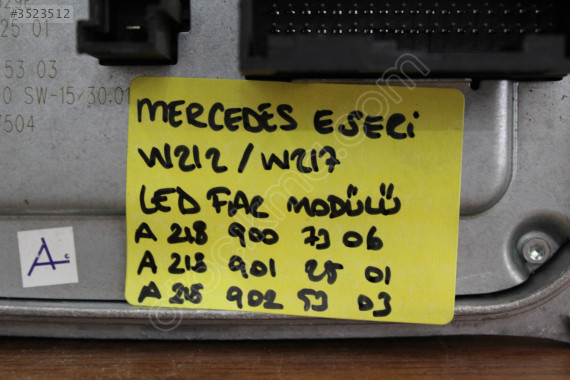 #3523512
25 01
53 03
0 SW-15/30.01
7504
MERCEDES E SERİ
W212 / W217
LED FAR MODÜLÜ
A 218 900 73 06
A 218 901 25 01
A 218 902 53 03
A